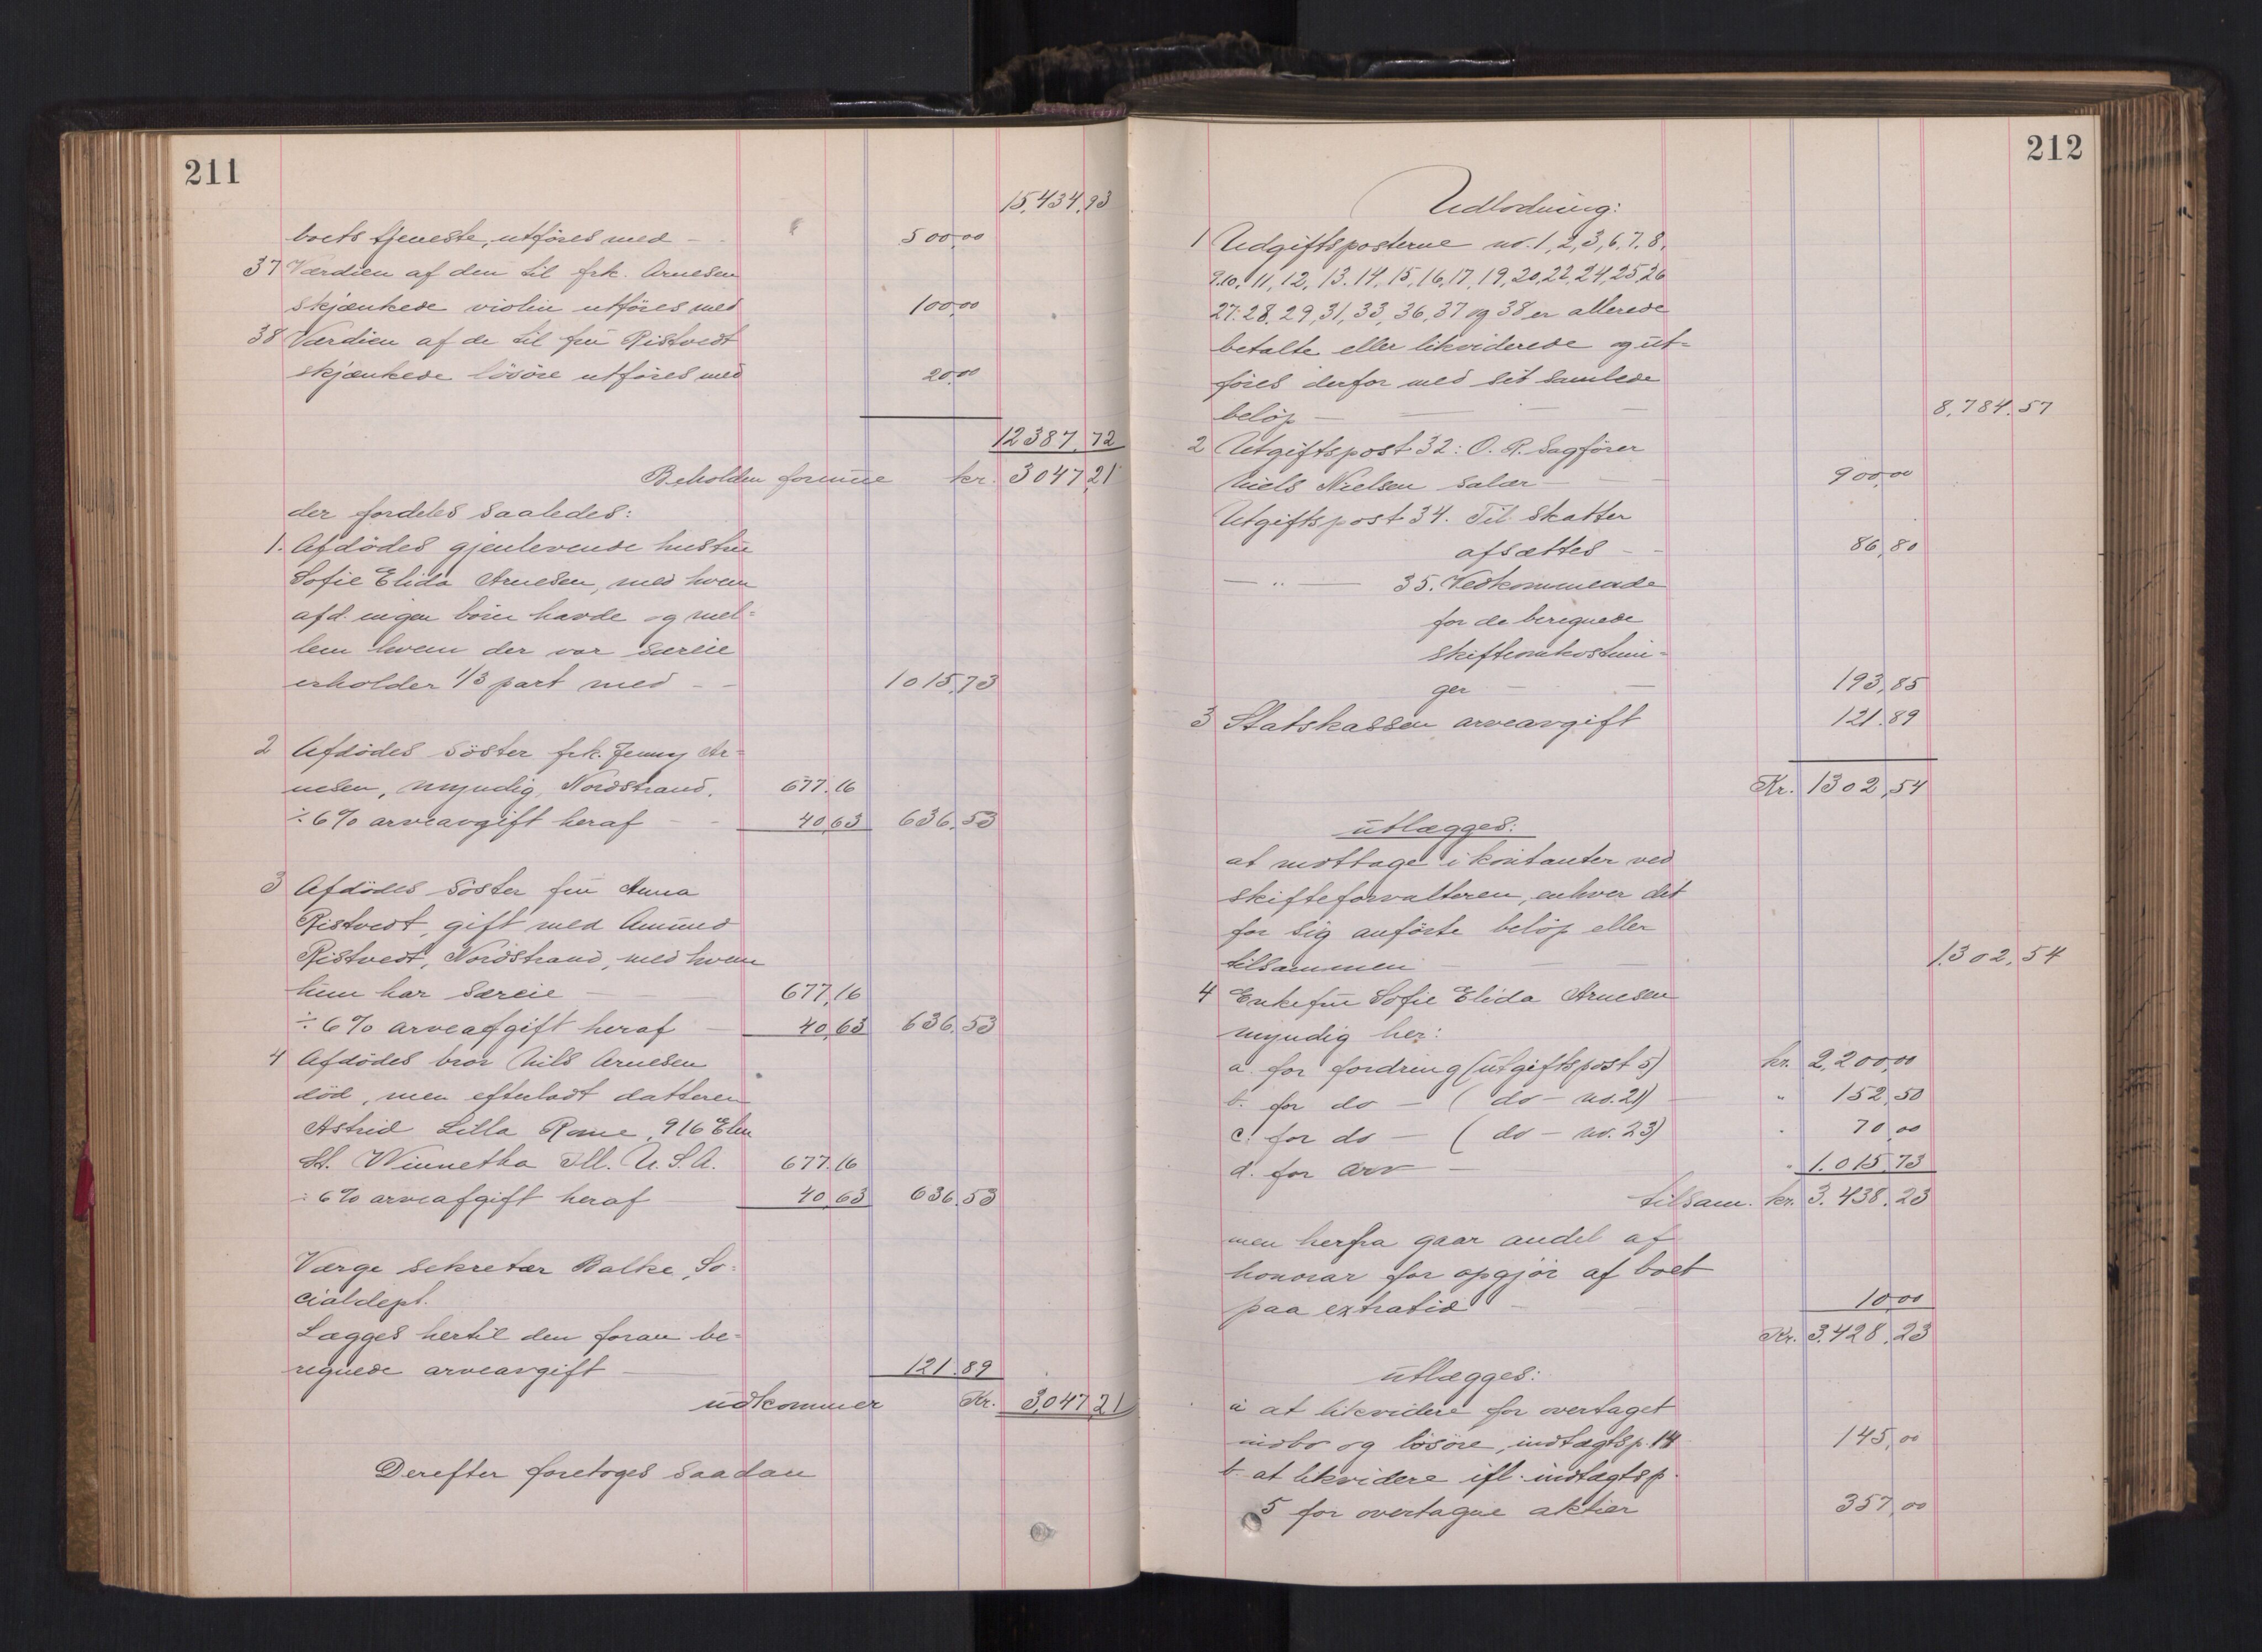 211
15,434,93
boets tjeneste, utföres med - - 500,00
37 Værdien af den til frk. Arnesen
skjænkede violin utföres med 100,00
38 Værdien af de til fru Ristvedt
skjænkede lösöre utföres med 20,00
12387,72
Beholden formue kr. 3047,21
der fordeles saaledes:
1. Afdödes gjenlevende hustru
Sofie Elida Arnesen, med hvem
afd. ingen börn havde og mel=
lem hvem der var særeie
erholder 1/3 part med - - 1015,73
2 Afdödes söster frk. Jenny Ar=
nesen, myndig, Nordstrand. 677.16
÷ 6% arveavgift heraf - - 40,63 636,53
3 Afdödes söster fru Anna
Ristvedt, gift med Amund
Ristvedt, Nordstrand, med hvem
hun har særeie - 677,16
÷ 6% arveafgift heraf - 40,63 636,53
4 Afdödes bror Nils Arnesen
död, men efterladt datteren
Astrid Lilla Rome, 916 Elm
St. Winnetka Ill. U.S.A. 677.16
÷ 6% arveafgift heraf - 40,63 636,53
Værge sekretær Balke, So=
cialdept.
Lægges hertil den foran be=
regnede arveavgift - 121.89
udkommer Kr. 3,047,21
Derefter foretoges saadan
212
Udlodning:
1 Udgiftsposterne no. 1, 2, 3, 6, 7, 8,
9.10, 11, 12, 13. 14, 15, 16, 17, 19, 20, 22, 24, 25, 26
27. 28. 29, 31, 33, 36, 37 og 38 er allerede
betalte eller likviderede og ut=
föres derfor med sit samlede
belöp - 8,784.57
2 Utgiftspost 32: O. R. Sagförer
Niels Nielsen salær - 900,00
Utgiftspost 34. Til skatter
afsættes - - 86,80
— " — 35. Vedkommende
for de beregnede
skifteomkostnin=
ger - 193,85
3 Statskassen arveavgift 121.89
Kr. 1302,54
utlægges:
at mottage i kontanter ved
skifteforvalteren, enhver det
for sig anförte belöp eller
tilsammen - 1302,54
4 Enkefru Sofie Elida Arnesen
myndig her:
a. for fordring (utgiftspost 5) kr. 2,200,00
b. for do - ( do - no. 21) " 152,50
c. for do - ( do - no. 23) " 70,00
d. for arv - " 1.015,73
tilsam. kr. 3.438.23
men herfra gaar andel af
honorar for opgjör af boet
paa extratid - 10,00
Kr. 3.428,23
utlægges:
a at likvidere for overtaget
indbo og lösöre, indtægtsp. 14 145,00
b at likvidere ifl. indtægtsp.
5 for overtagne aktier 357,00